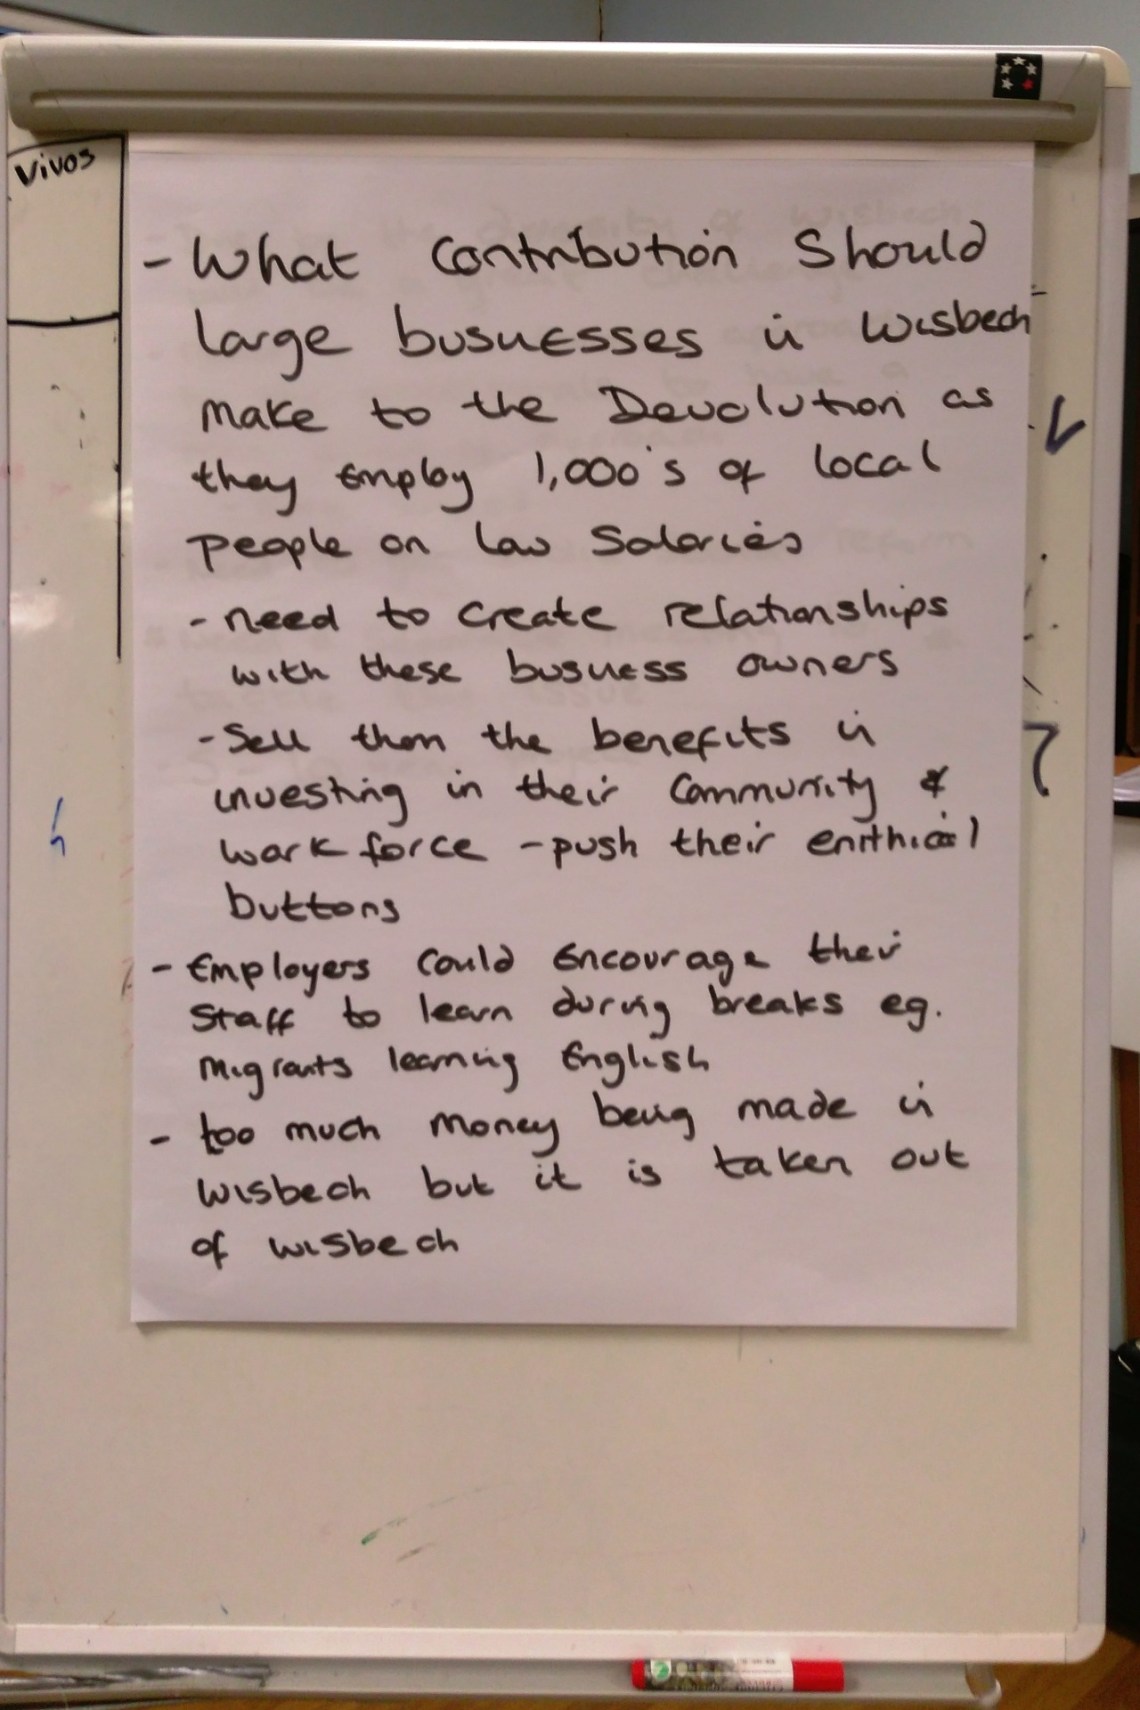 Vivos
- What contribution should
large businesses in Wisbech
make to the Devolution as
they employ 1,000's of local
people on low salaries
- need to create relationships
with these business owners
- Sell them the benefits in
investing in their community &
work force - push their enithical
buttons
- Employers could encourage their
staff to learn during breaks eg.
migrants learning English
- too much money being made in
wisbech but it is taken out
of wisbech